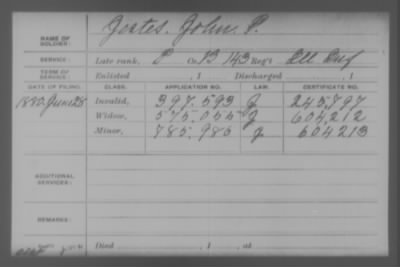 NAME OF SOLDIER: Yeates, John P.
SERVICE: Late rank, P Co. B 143 Reg't Ill Inf
TERM OF SERVICE: Enlisted , 1 Discharged , 1
DATE OF FILING. CLASS. APPLICATION NO. LAW. CERTIFICATE NO.
1880, June 28 Invalid, 397.593 J 245,797
Widow, 575.055 J 604,212
Minor, 785.986 J 604213
ADDITIONAL SERVICES:
REMARKS:
Died , 1 , at